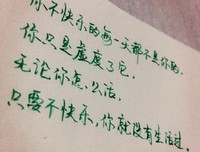 你不快乐的每一天都不是你的，
你只是虚度了它。
无论你怎么活，
只要不快乐，你就没有生活过。